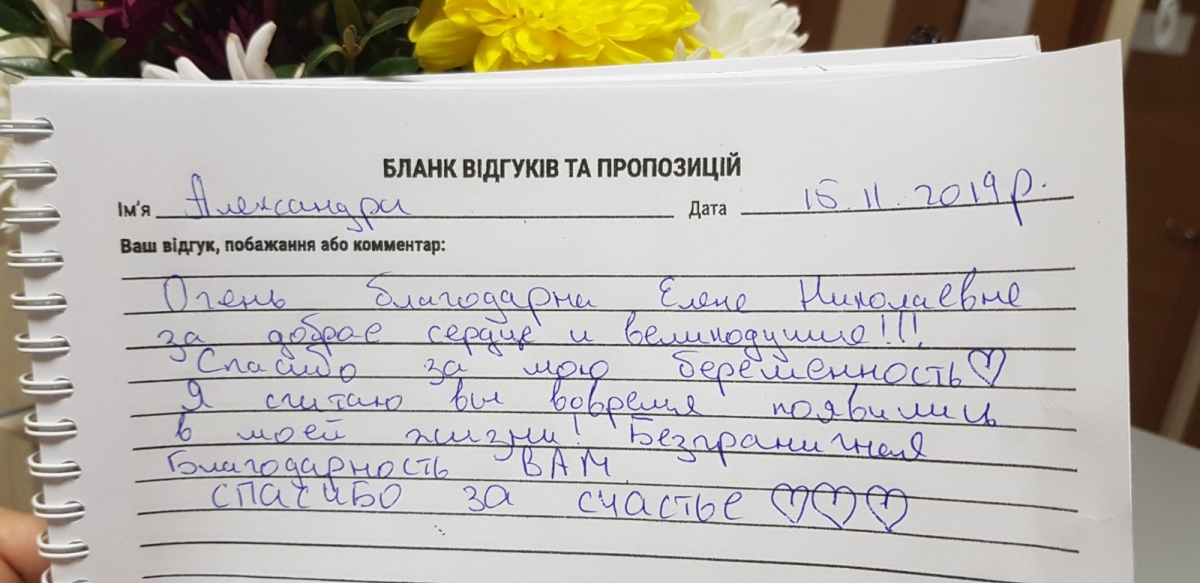 БЛАНК ВІДГУКІВ ТА ПРОПОЗИЦІЙ
Ім'я Александра Дата 15.11.2019р.
Ваш відгук, побажання або комментар:
Очень благодарна Елене Николаевне
за доброе сердце и великодушие!!!
Спасибо за мою беременность♡
Я считаю вы вовремя появились
в моей жизни! Безграничная
Благодарность ВАМ
СПАСИБО за счастье ♡♡♡